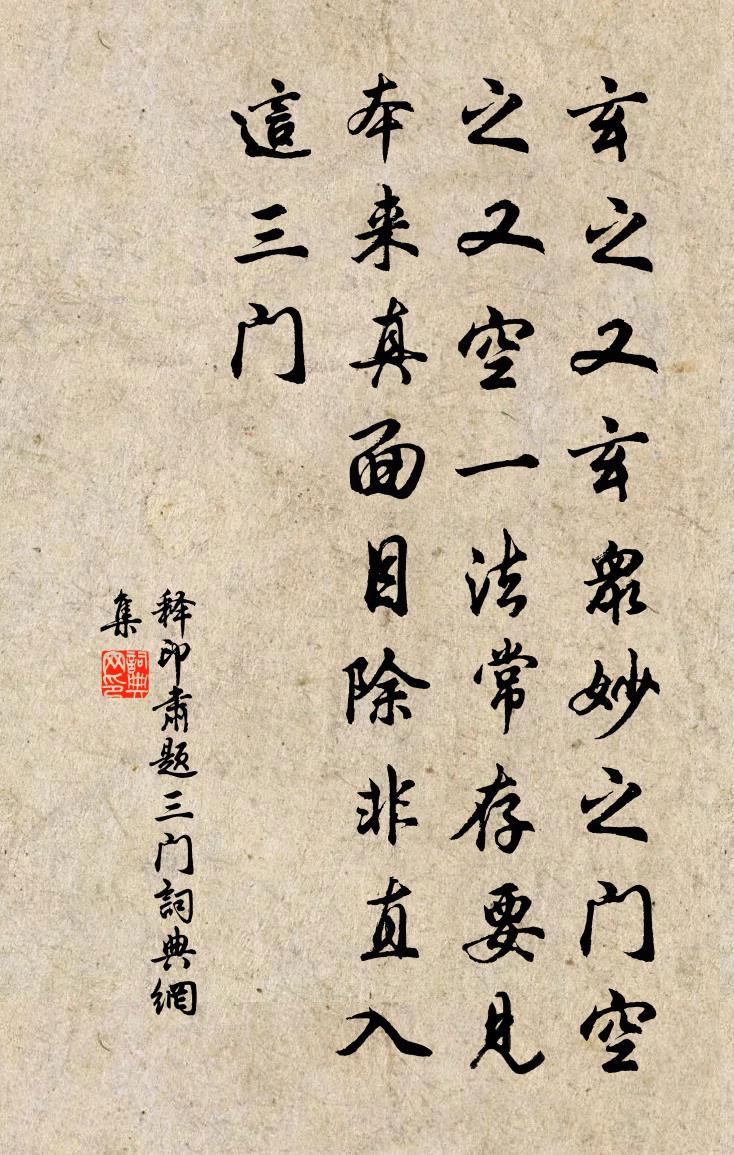 玄之又玄衆妙之门空
之又空一法常存要见
本来真面目除非直入
這三门
释印肃题三门詞典網
集
詞典
网印